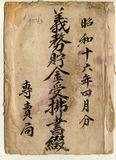 昭和十六年四月分
義務貯金受拂書綴
專賣局